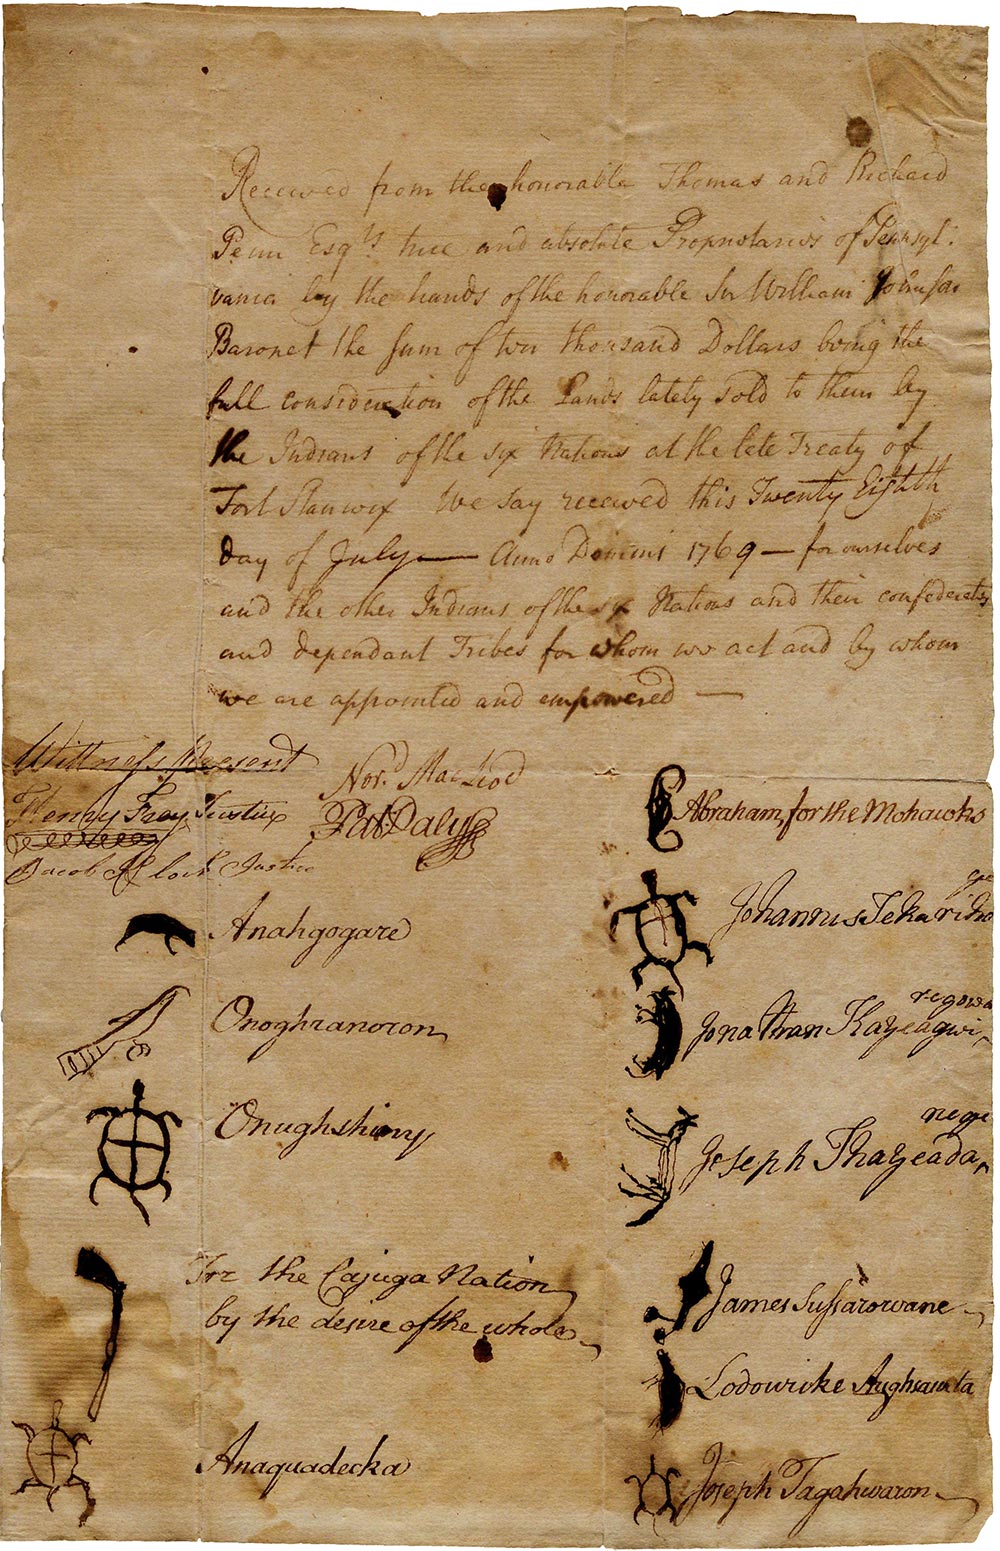 Received from the honorable Thomas and Richard
Penn Esqrs. true and absolute Proprietaries of Pensyl-
vania by the hands of the honorable Sir William Johnson
Baronet the sum of ten thousand Dollars being the
full consideration of the Lands lately sold to them by
the Indians of the six Nations at the late Treaty of
Fort Stanwix We say received this Twenty Eighth
day of July — Anno Domini 1769 — for ourselves
and the other Indians of the six Nations and their confederates
and dependant Tribes for whom we act and by whom
we are appointed and empowered —
Wittness Present
Henry Frey Justice
Jacob Klock Justice
Nord. MacLeod
Pat Daly
Anahgogare
Onoghranoron
Onughshiny
For the Cajuga Nation
by the desire of the whole
Anaquadecka
Abraham for the Mohawks
Johannes Tekarihoge
Jonathan Kayeagwiregowa
Joseph Thayeadanege
James Sussarowane
Lodowike Aughsawata
Joseph Tagahwaron